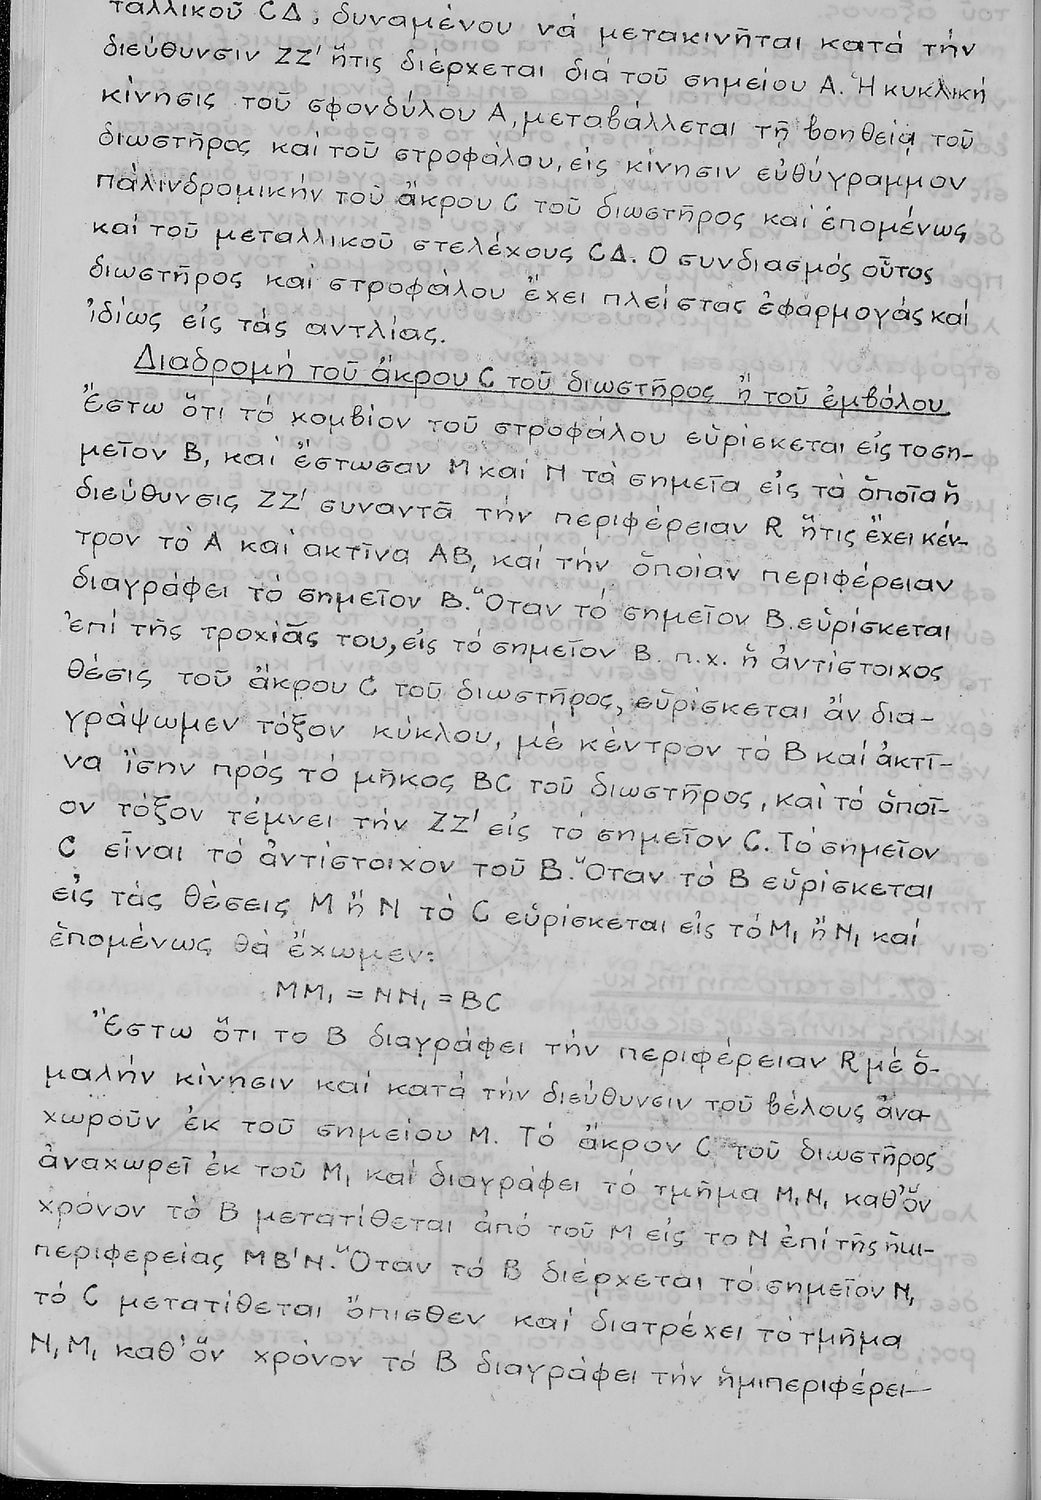 ταλλικοῦ CΔ, δυναμένου νά μετακινῆται κατά τήν
διεύθυνσιν ΖΖ' ἥτις διέρχεται διά τοῦ σημείου Α. Ἡ κυκλική
κίνησις τοῦ σφονδύλου Α, μεταβάλλεται τῇ βοηθείᾳ τοῦ
διωστῆρος καί τοῦ στροφάλου, εἰς κίνησιν εὐθύγραμμον
παλινδρομικήν τοῦ ἄκρου C τοῦ διωστῆρος καί ἑπομένως
καί τοῦ μεταλλικοῦ στελέχους CΔ. Ο συνδιασμός οὗτος
διωστῆρος καί στροφάλου ἔχει πλείστας ἐφαρμογάς καί
ἰδίως εἰς τάς αντλίας.
Διαδρομή τοῦ ἄκρου C τοῦ διωστῆρος ἤ τοῦ ἐμβόλου.
Ἔστω ὅτι τό κομβίον τοῦ στροφάλου εὑρίσκεται εἰς το ση-
μεῖον Β, καί ἔστωσαν Μ καί Ν τά σημεῖα εἰς τά ὁποῖα ἡ
διεύθυνσις ΖΖ' συναντᾶ τήν περιφέρειαν R ἥτις ἔχει κέν-
τρον τό Α καί ακτῖνα ΑΒ, καί τήν ὁποίαν περιφέρειαν
διαγράφει τό σημεῖον Β. Ὅταν τό σημεῖον Β. εὑρίσκεται
ἐπί τῆς τροχιᾶς του, εἰς τό σημεῖον Β. π.χ. ἡ ἀντίστοιχος
θέσις τοῦ ἄκρου C τοῦ διωστῆρος, εὑρίσκεται ἄν δια-
γράψωμεν τόξον κύκλου, μέ κέντρον τό Β καί ἀκτῖ-
να ἴσην πρός τό μῆκος BC τοῦ διωστῆρος, καί τό ὁποῖ-
ον τόξον τέμνει τήν ΖΖ' εἰς τό σημεῖον C. Τό σημεῖον
C εἶναι τό ἀντίστοιχον τοῦ Β. Ὅταν τό Β εὑρίσκεται
εἰς τάς θέσεις Μ ἤ Ν τό C εὑρίσκεται εἰς τό Μ₁ ἤ Ν₁ καί
ἑπομένως θά ἔχωμεν:
ΜΜ₁ = ΝΝ₁ = BC
Ἔστω ὅτι το Β διαγράφει τήν περιφέρειαν R μέ ὁ-
μαλήν κίνησιν καί κατά τήν διεύθυνσιν τοῦ βέλους ἀνα-
χωροῦν ἐκ τοῦ σημείου Μ. Τό ἄκρον C τοῦ διωστῆρος
ἀναχωρεῖ ἐκ τοῦ Μ₁ καί διαγράφει τό τμῆμα Μ₁Ν₁ καθ' ὅν
χρόνον τό Β μετατίθεται ἀπό τοῦ Μ εἰς το Ν ἐπί τῆς ἡμι-
περιφερείας ΜΒ'Ν. Ὅταν τό Β διέρχεται τό σημεῖον Ν,
τό C μετατίθεται ὄπισθεν καί διατρέχει τό τμῆμα
Ν₁Μ₁ καθ' ὅν χρόνον τό Β διαγράφει τήν ἡμιπεριφέρει-